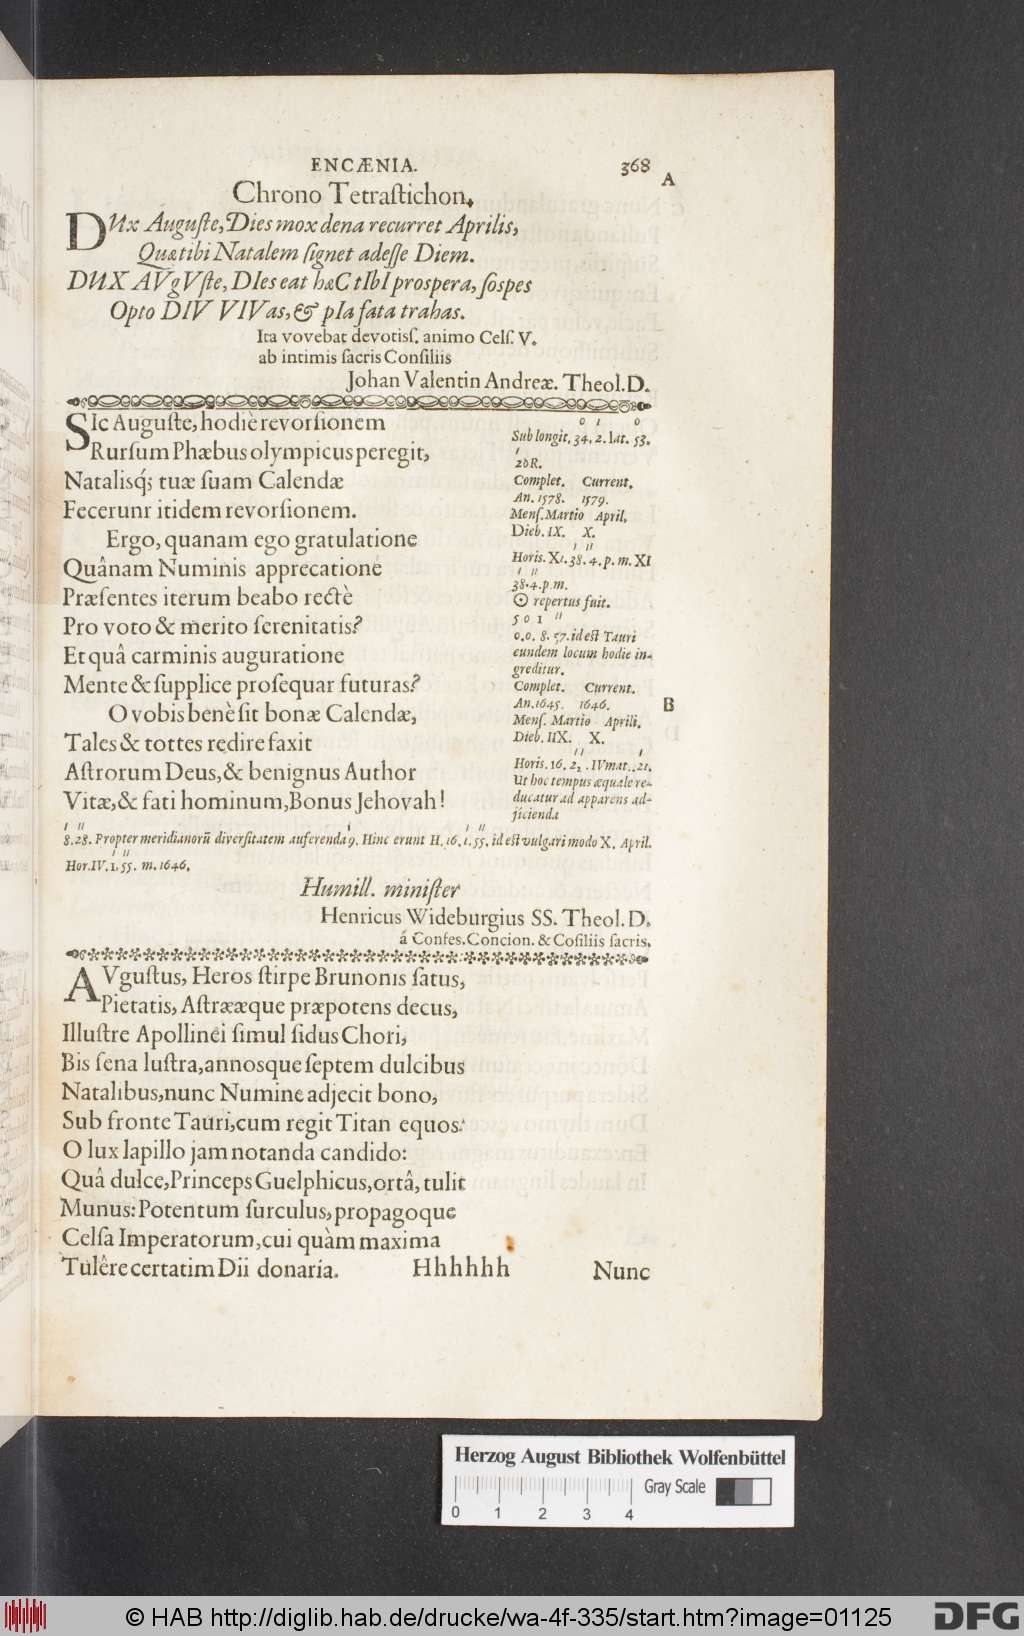 ENCÆNIA. 368
A
Chrono Tetraſtichon.
DUx Auguſte, Dies mox dena recurret Aprilis,
Quæ tibi Natalem ſignet adeſſe Diem.
DUX AVgVſte, DIes eat hæC tIbI proſpera, ſoſpes
Opto DIV VIVas, & pIa fata trahas.
Ita vovebat devotiſſ. animo Celſ. V.
ab intimis ſacris Conſiliis
Johan Valentin Andreæ. Theol. D.
SIc Auguſte, hodiè revorſionem
Rurſum Phæbus olympicus peregit,
Natalisq́; tuæ ſuam Calendæ
Fecerunr itidem revorſionem.
Ergo, quanam ego gratulatione
Quânam Numinis apprecatione
Præſentes iterum beabo rectè
Pro voto & merito ſerenitatis?
Et quâ carminis auguratione
Mente & ſupplice proſequar futuras?
O vobis benè ſit bonæ Calendæ,
Tales & tottes redire faxit
Aſtrorum Deus, & benignus Author
Vitæ, & fati hominum, Bonus Jehovah!
0 1 0
Sub longit. 34. 2. lat. 53.
Complet. Current.
An. 1578. 1579.
Menſ. Martio April.
Dieb. IX. X.
Horis. XI. 38. 4. p. m. XI
38. 4. p. m.
☉ repertus fuit.
5 0 1 ''
0. 0. 8. 57. id eſt Tauri
eundem locum hodie in-
greditur.
Complet. Current.
An. 1645. 1646.
B
Menſ. Martio Aprili.
Dieb. IIX. X.
Horis. 16. 21. IV mat. 21.
Ut hoc tempus æquale re-
ducatur ad apparens ad-
jicienda
8. 28. Propter meridianorũ diverſitatem auferenda 9. Hinc erunt H. 16. 1. 55. id eſt vulgari modo X. April.
Hor. IV. 1. 55. m. 1646.
Humill. miniſter
Henricus Wideburgius SS. Theol. D.
á Confeſ. Concion. & Coſiliis ſacris.
AVguſtus, Heros ſtirpe Brunonis ſatus,
Pietatis, Aſtrææque præpotens decus,
Illuſtre Apollinei ſimul ſidus Chori,
Bis ſena luſtra, annosque ſeptem dulcibus
Natalibus, nunc Numine adjecit bono,
Sub fronte Tauri, cum regit Titan equos:
O lux lapillo jam notanda candido:
Quâ dulce, Princeps Guelphicus, ortâ, tulit
Munus: Potentum ſurculus, propagoque
Celſa Imperatorum, cui quàm maxima
Tulêre certatim Dii donaria. Hhhhhh Nunc
Herzog August Bibliothek Wolfenbüttel
Gray Scale
0 1 2 3 4
© HAB http://diglib.hab.de/drucke/wa-4f-335/start.htm?image=01125
DFG